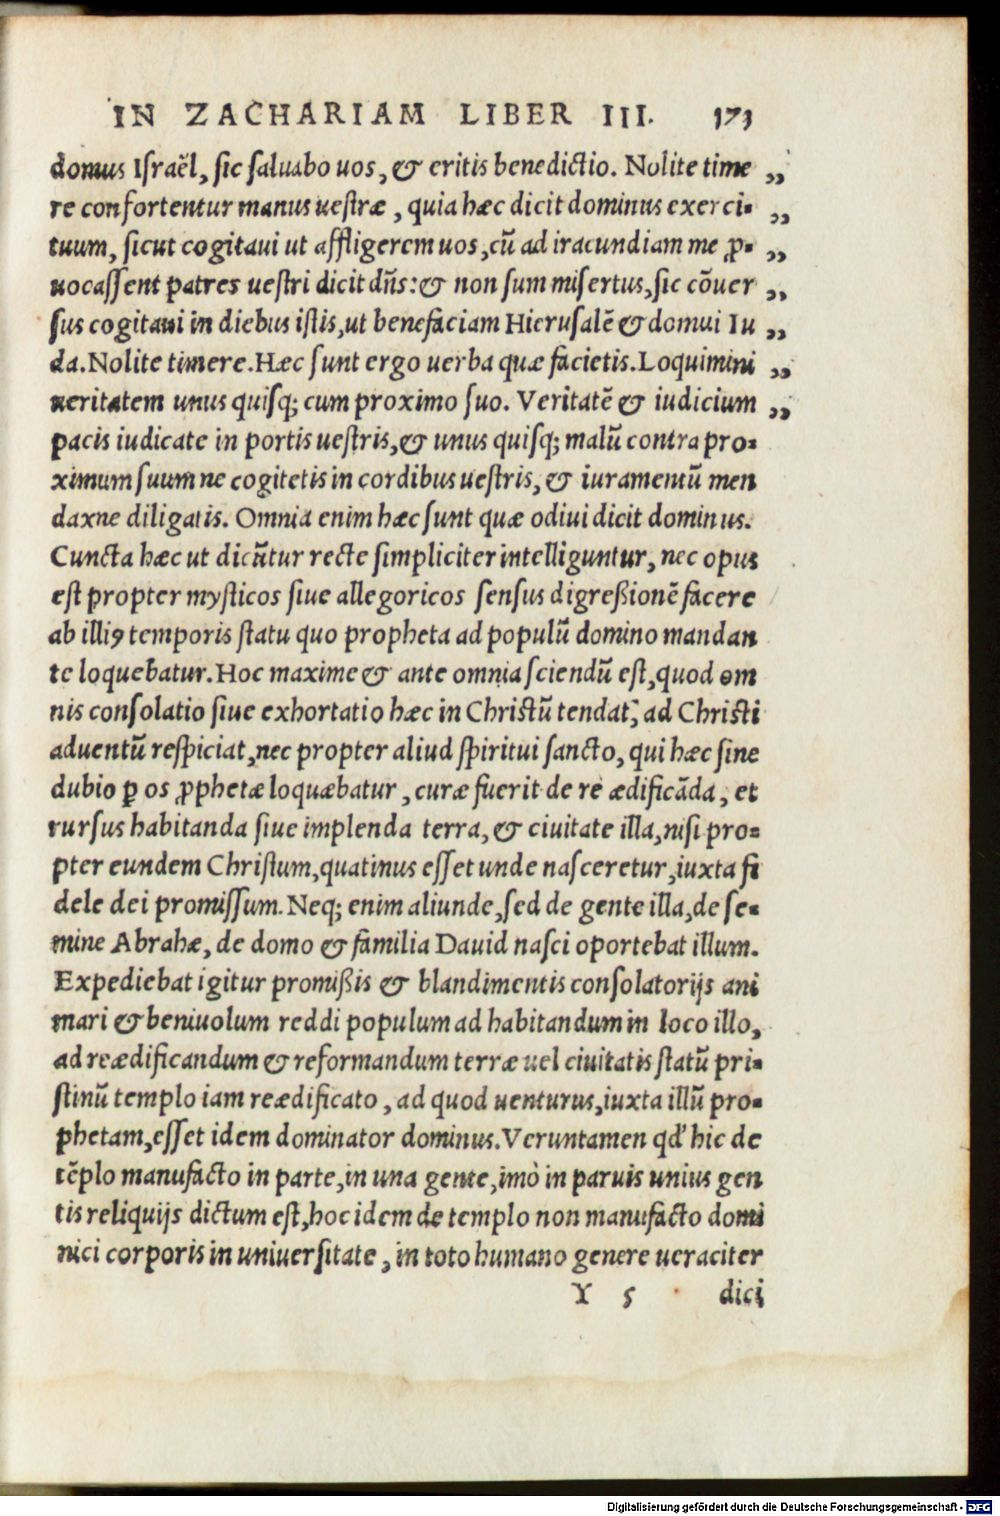 IN ZACHARIAM LIBER III. 173
domus Iſraël, ſic ſaluabo uos, & eritis benedictio. Nolite time „
re confortentur manus ueſtræ, quia hæc dicit dominus exerci- „
tuum, ſicut cogitaui ut affligerem uos, cũ ad iracundiam me ꝓ- „
uocaſſent patres ueſtri dicit dñs: & non ſum miſertus, ſic cõuer „
ſus cogitaui in diebus iſtis, ut benefaciam Hieruſalẽ & domui Iu „
da. Nolite timere. Hæc ſunt ergo uerba quæ facietis. Loquimini „
ueritatem unus quiſq; cum proximo ſuo. Veritatẽ & iudicium „
pacis iudicate in portis ueſtris, & unus quiſq; malũ contra pro-
ximum ſuum ne cogitetis in cordibus ueſtris, & iuramentũ men
dax ne diligatis. Omnia enim hæc ſunt quæ odiui dicit dominus.
Cuncta hæc ut dicũtur recte ſimpliciter intelliguntur, nec opus
eſt propter myſticos ſiue allegoricos ſenſus digreßionẽ facere
ab illiꝰ temporis ſtatu quo propheta ad populũ domino mandan
te loquebatur. Hoc maxime & ante omnia ſciendũ eſt, quod om
nis conſolatio ſiue exhortatio hæc in Chriſtũ tendat, ad Chriſti
aduentũ reſpiciat, nec propter aliud ſpiritui ſancto, qui hæc ſine
dubio ꝑ os ꝓphetæ loquæbatur, curæ fuerit de re ædificãda, et
rurſus habitanda ſiue implenda terra, & ciuitate illa, niſi pro-
pter eundem Chriſtum, quatinus eſſet unde naſceretur, iuxta fi
dele dei promiſſum. Neq; enim aliunde, ſed de gente illa, de ſe-
mine Abrahæ, de domo & familia Dauid naſci oportebat illum.
Expediebat igitur promißis & blandimentis conſolatorijs ani
mari & beniuolum reddi populum ad habitandum in loco illo,
ad reædificandum & reformandum terræ uel ciuitatis ſtatũ pri-
ſtinũ templo iam reædificato, ad quod uenturus, iuxta illũ pro-
phetam, eſſet idem dominator dominus. Veruntamen qđ hic de
tẽplo manufacto in parte, in una gente, imò in paruis unius gen
tis reliquijs dictum eſt, hoc idem de templo non manufacto domi
nici corporis in uniuerſitate, in toto humano genere ueraciter
Y 5 dici
Digitalisierung gefördert durch die Deutsche Forschungsgemeinschaft - DFG